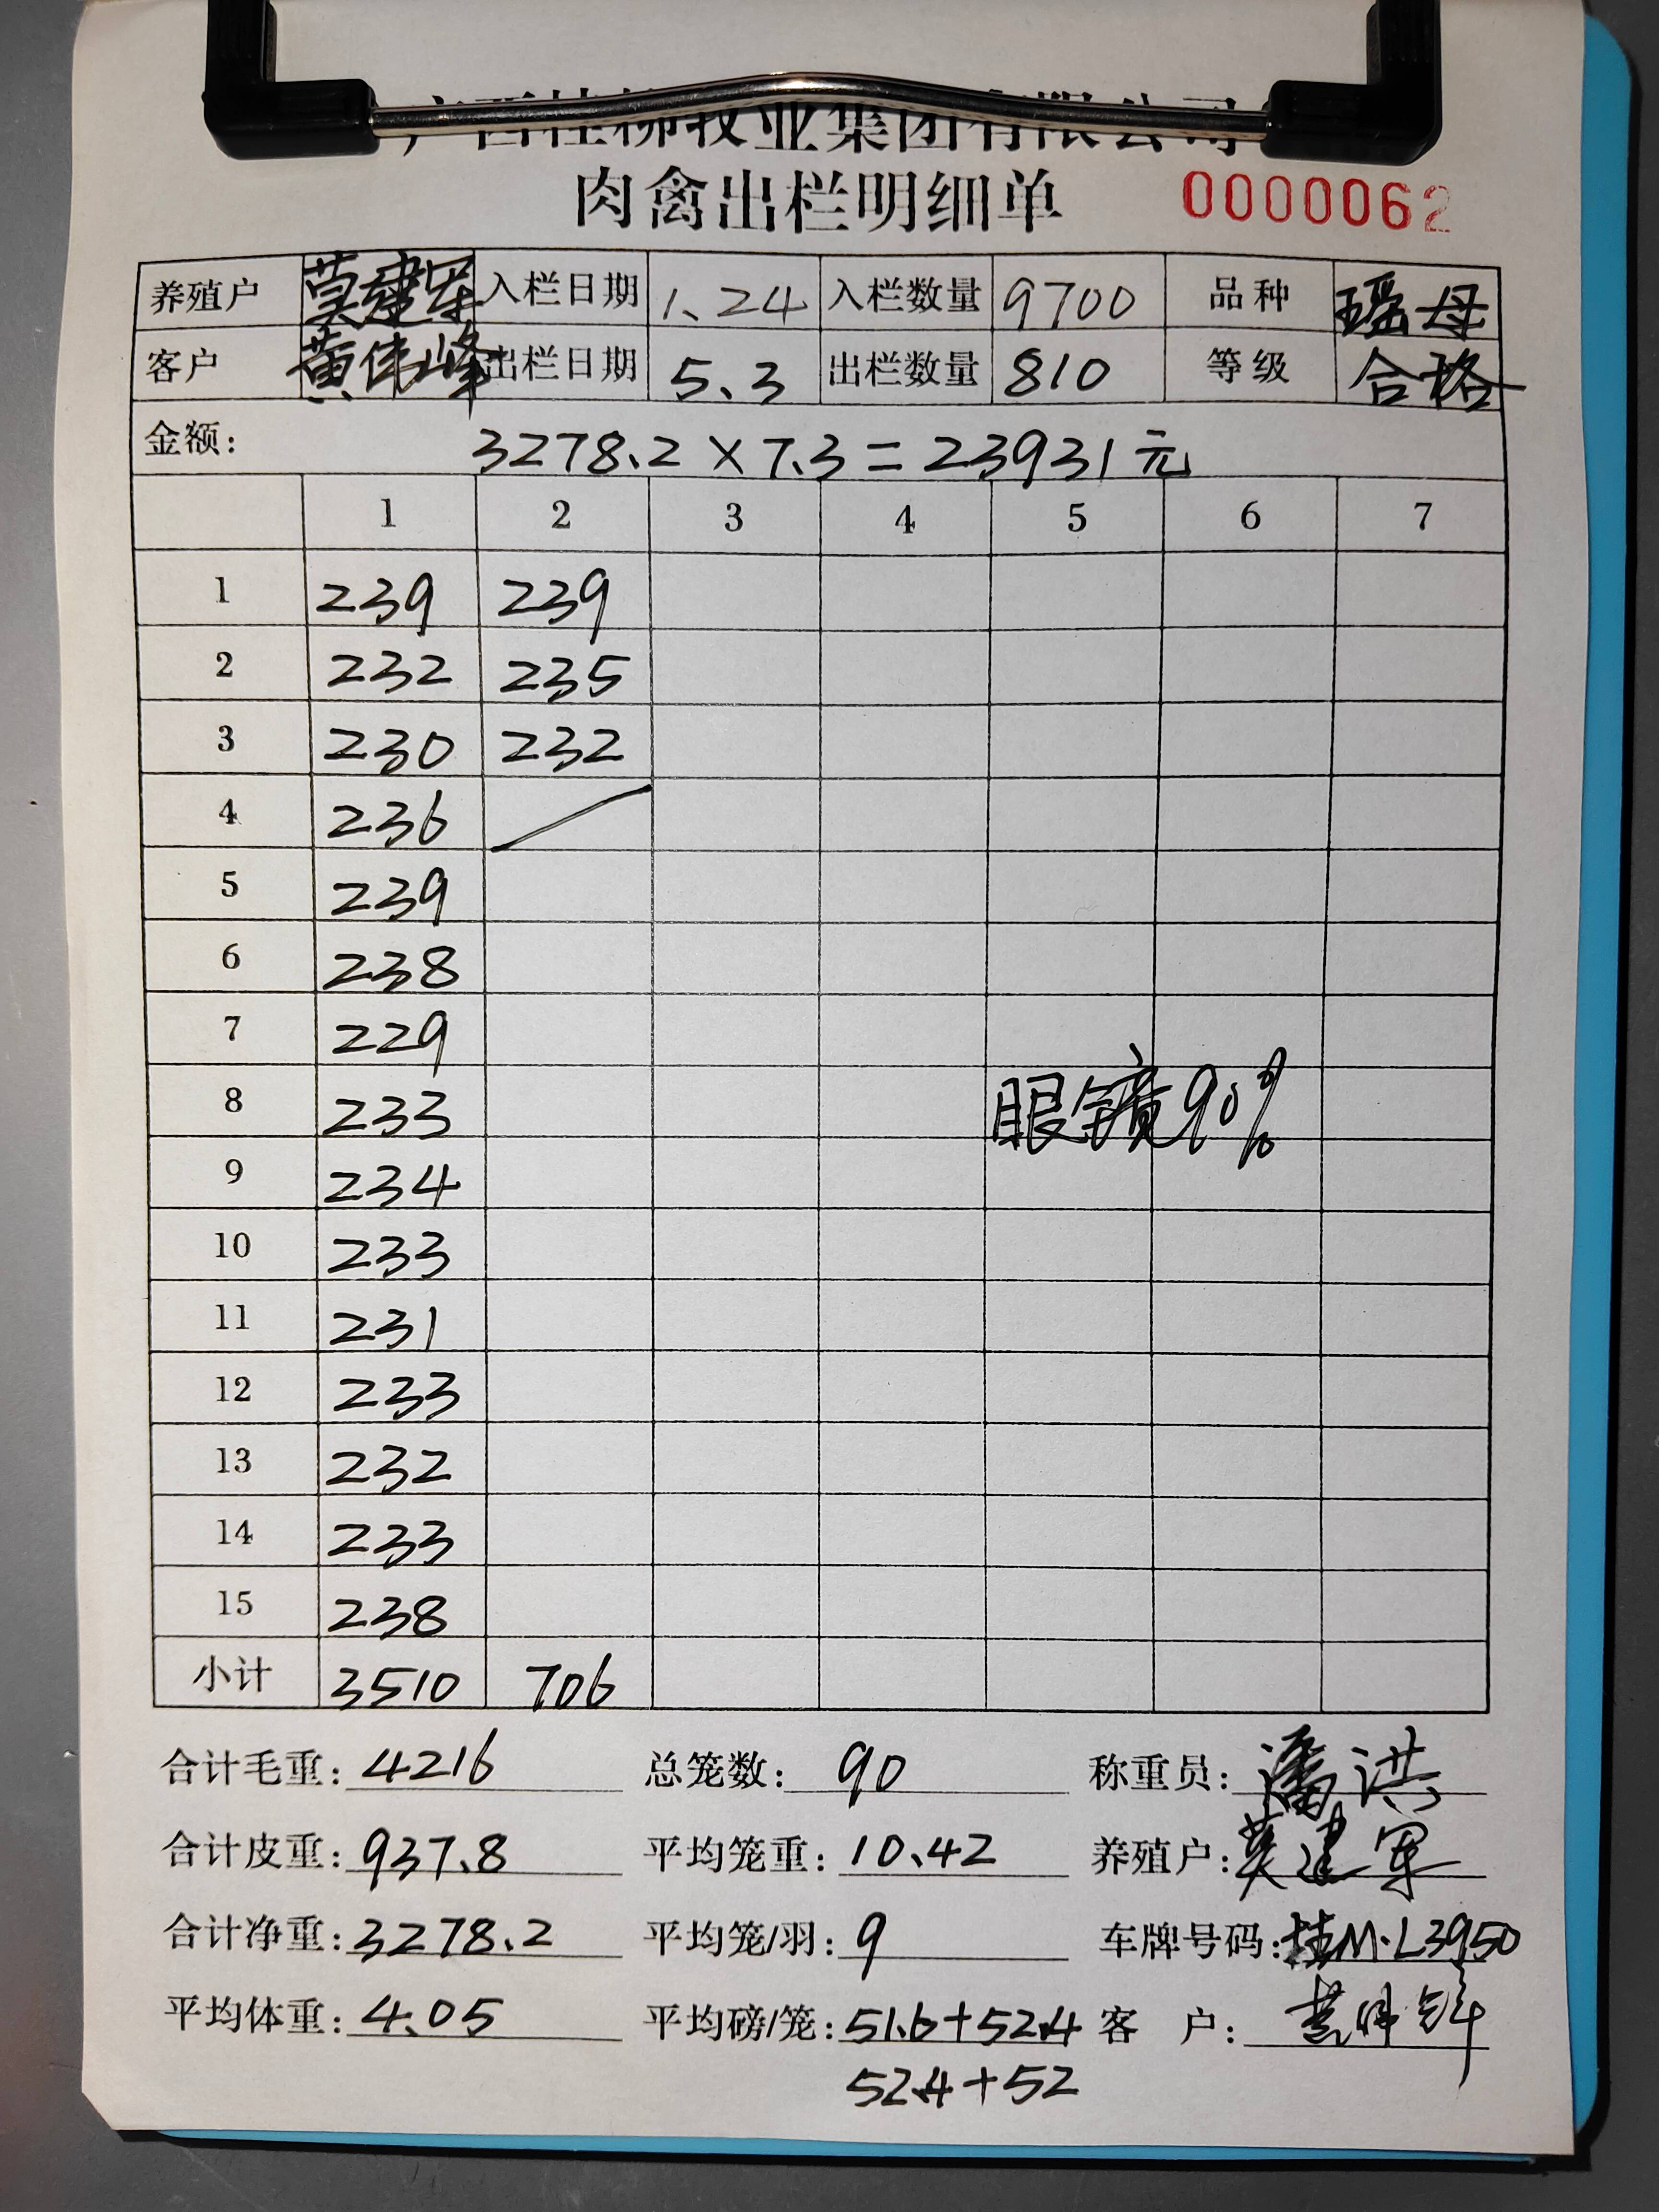 广西桂柳牧业集团有限公司
肉禽出栏明细单 0000062
养殖户 莫建军 入栏日期 1.24 入栏数量 9700 品种 瑶母
客户 黄伟峰 出栏日期 5.3 出栏数量 810 等级 合格
金额: 3278.2×7.3=23931元
1 2 3 4 5 6 7
1 239 239
2 232 235
3 230 232
4 236
5 239
6 238
7 229
8 233 眼镜90%
9 234
10 233
11 231
12 233
13 232
14 233
15 238
小计 3510 706
合计毛重: 4216 总笼数: 90 称重员: 潘洪
合计皮重: 937.8 平均笼重: 10.42 养殖户: 莫建军
合计净重: 3278.2 平均笼/羽: 9 车牌号码: 桂M·L3950
平均体重: 4.05 平均磅/笼: 51.6+52.4 客 户:
52.4+52